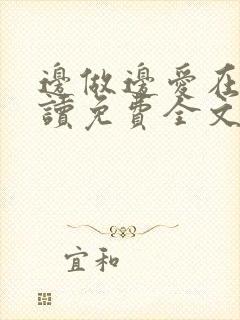 邊做邊愛在
讀免費全文
宜和